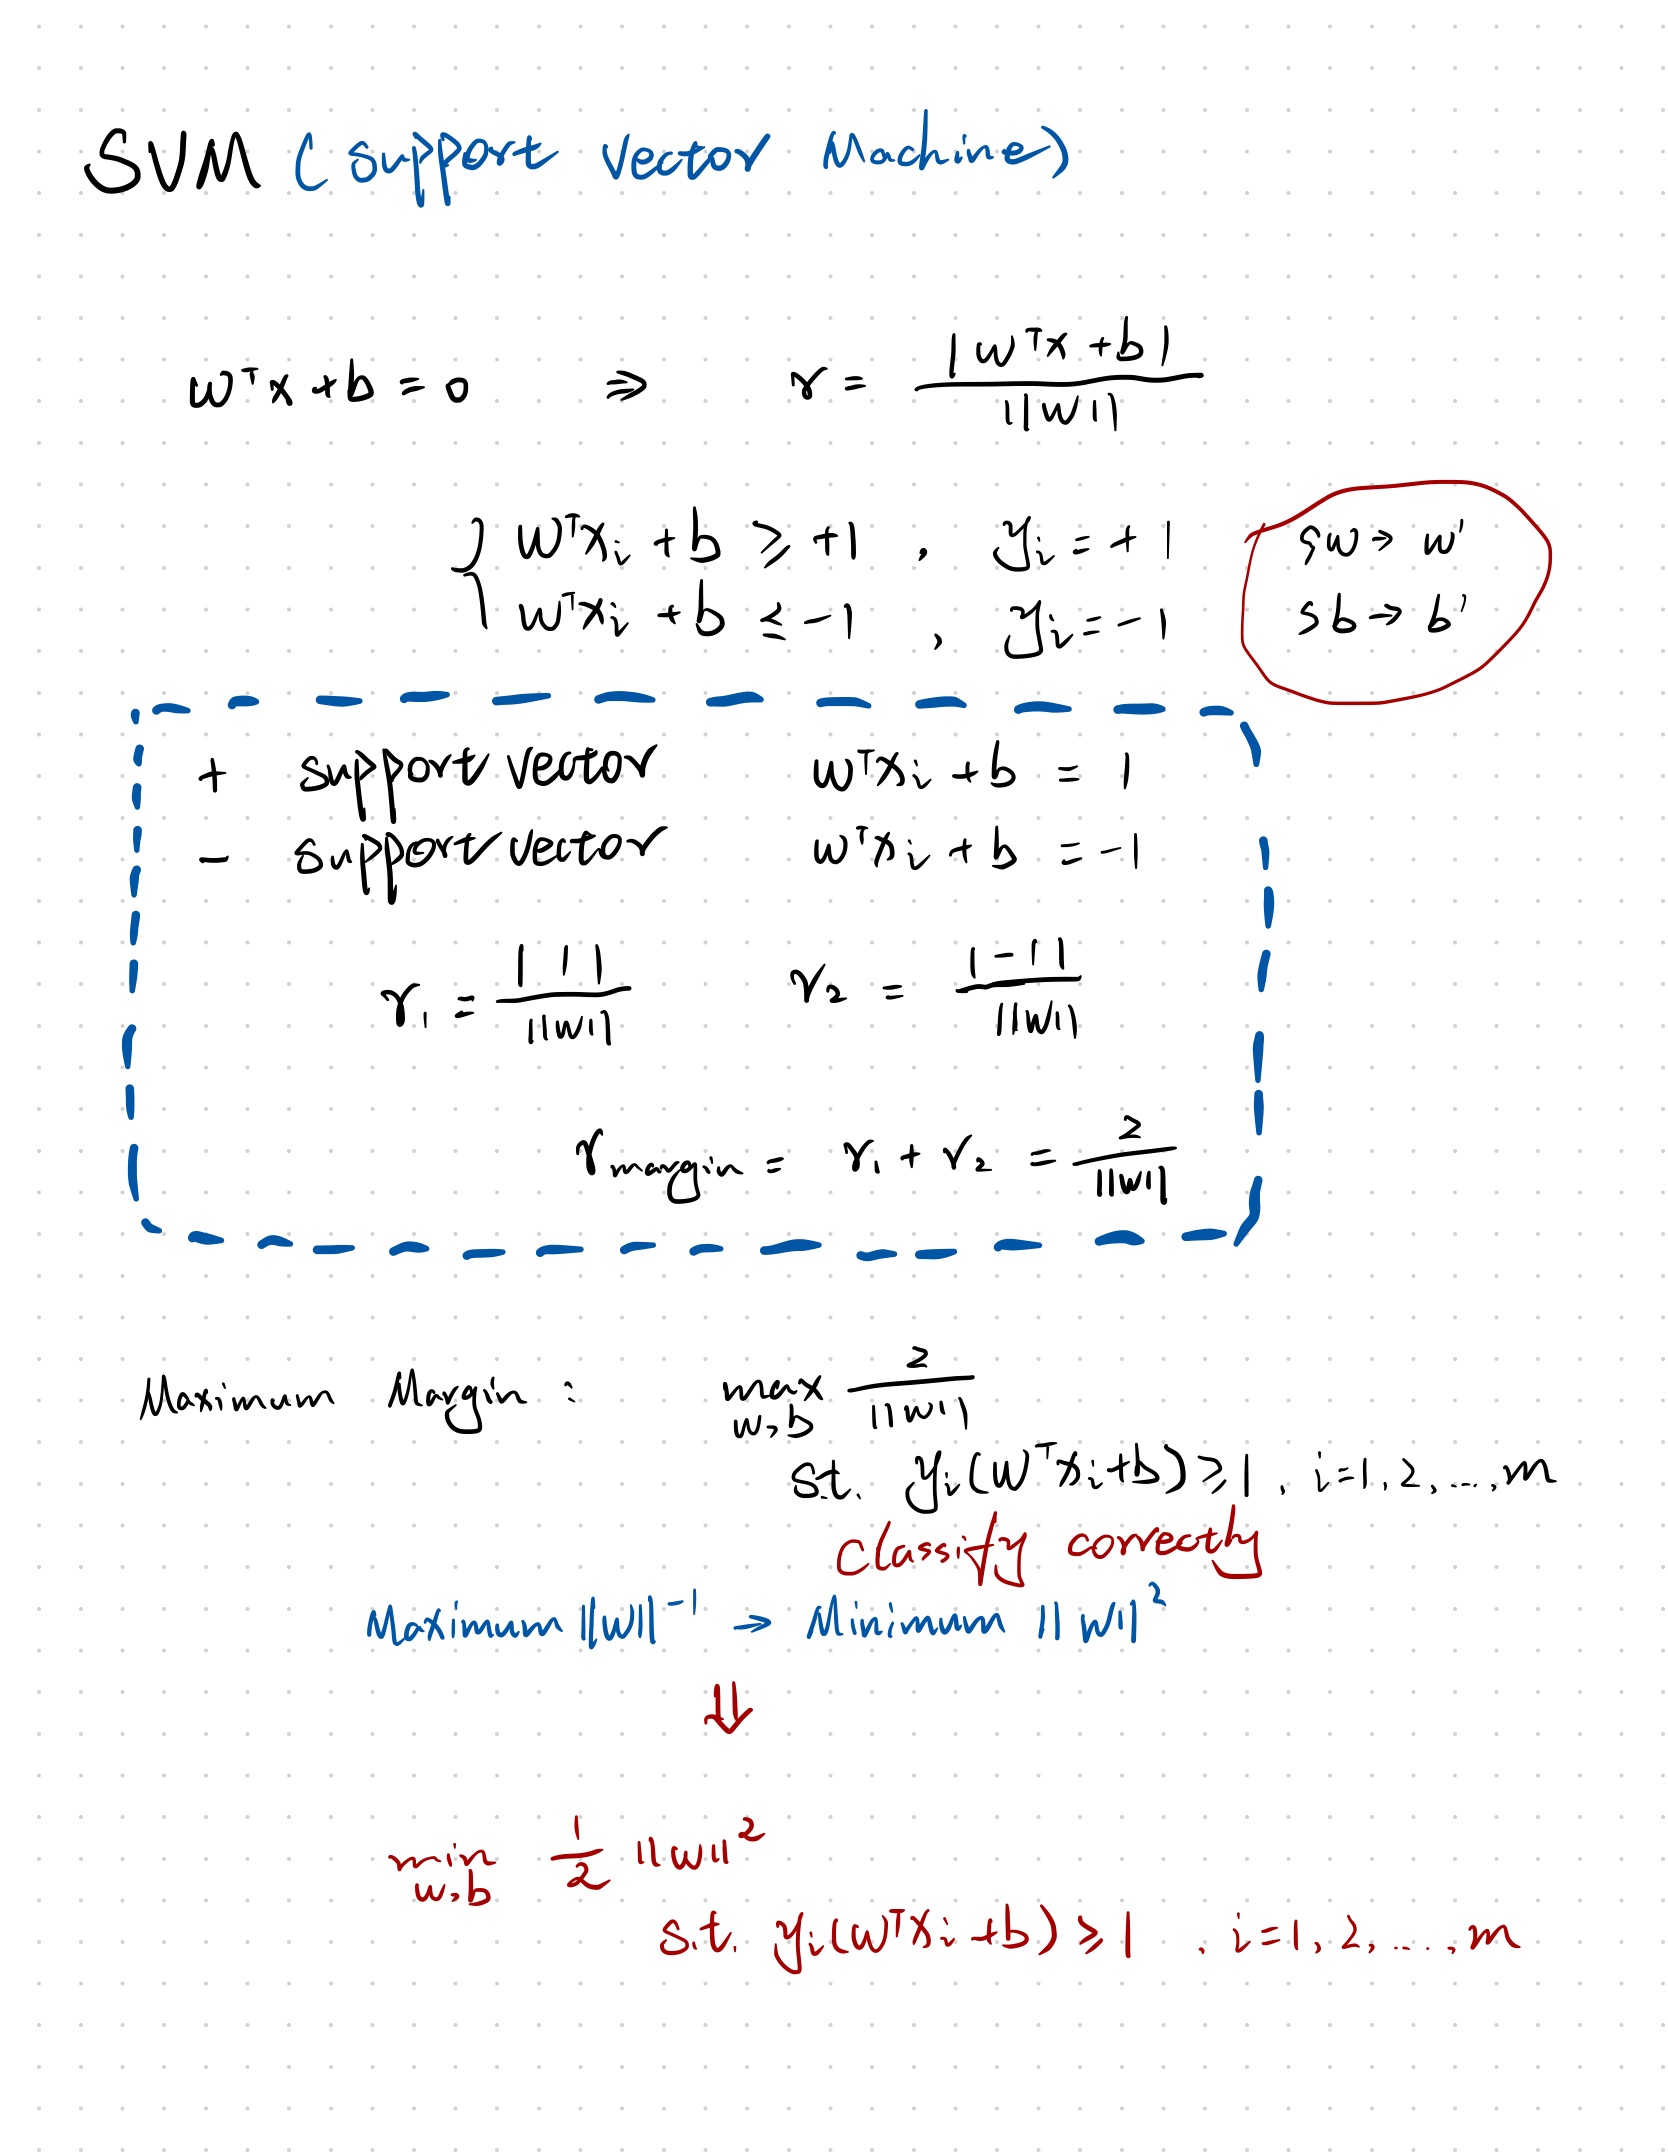 SVM (Support Vector Machine)
wᵀx + b = 0 ⇒ r = |wᵀx + b| / ||w||
{ wᵀxᵢ + b ≥ +1 , yᵢ = +1
wᵀxᵢ + b ≤ -1 , yᵢ = -1
ςw → w'
sb → b'
+ support vector wᵀxᵢ + b = 1
- support vector wᵀxᵢ + b = -1
r₁ = |1| / ||w|| r₂ = |-1| / ||w||
r_margin = r₁ + r₂ = 2 / ||w||
Maximum Margin : max_{w,b} 2 / ||w||
st. yᵢ(wᵀxᵢ+b) ≥ 1 , i=1,2,...,m
Classify correctly
Maximum ||w||⁻¹ → Minimum ||w||²
⇓
min_{w,b} 1/2 ||w||²
s.t. yᵢ(wᵀxᵢ+b) ≥ 1 , i=1,2,....,m